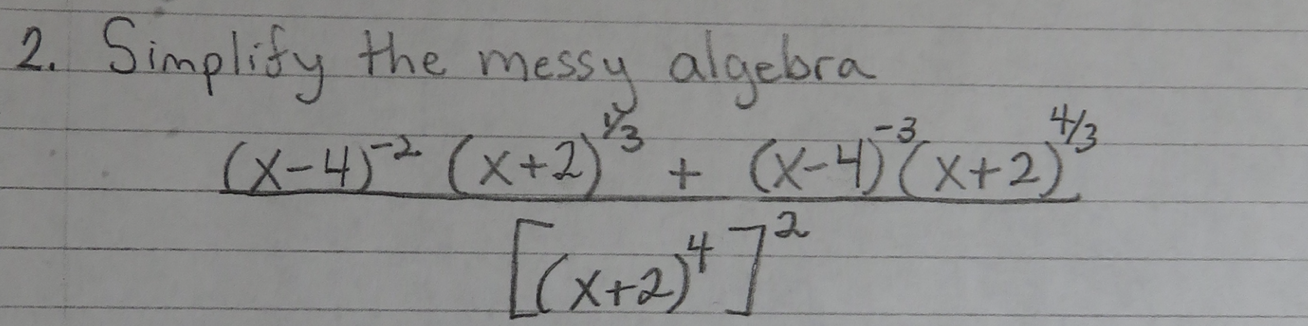 2. Simplify the messy algebra
(x-4)^-2 (x+2)^1/3 + (x-4)^-3 (x+2)^4/3
[(x+2)^4]^2